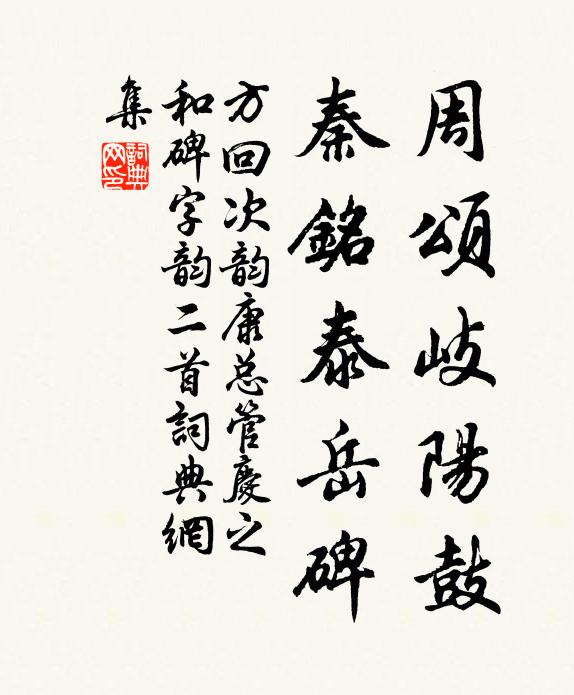 周頌岐陽鼓
秦銘泰岳碑
方回次韵康总管慶之
和碑字韵二首詞典網
集
詞典网印